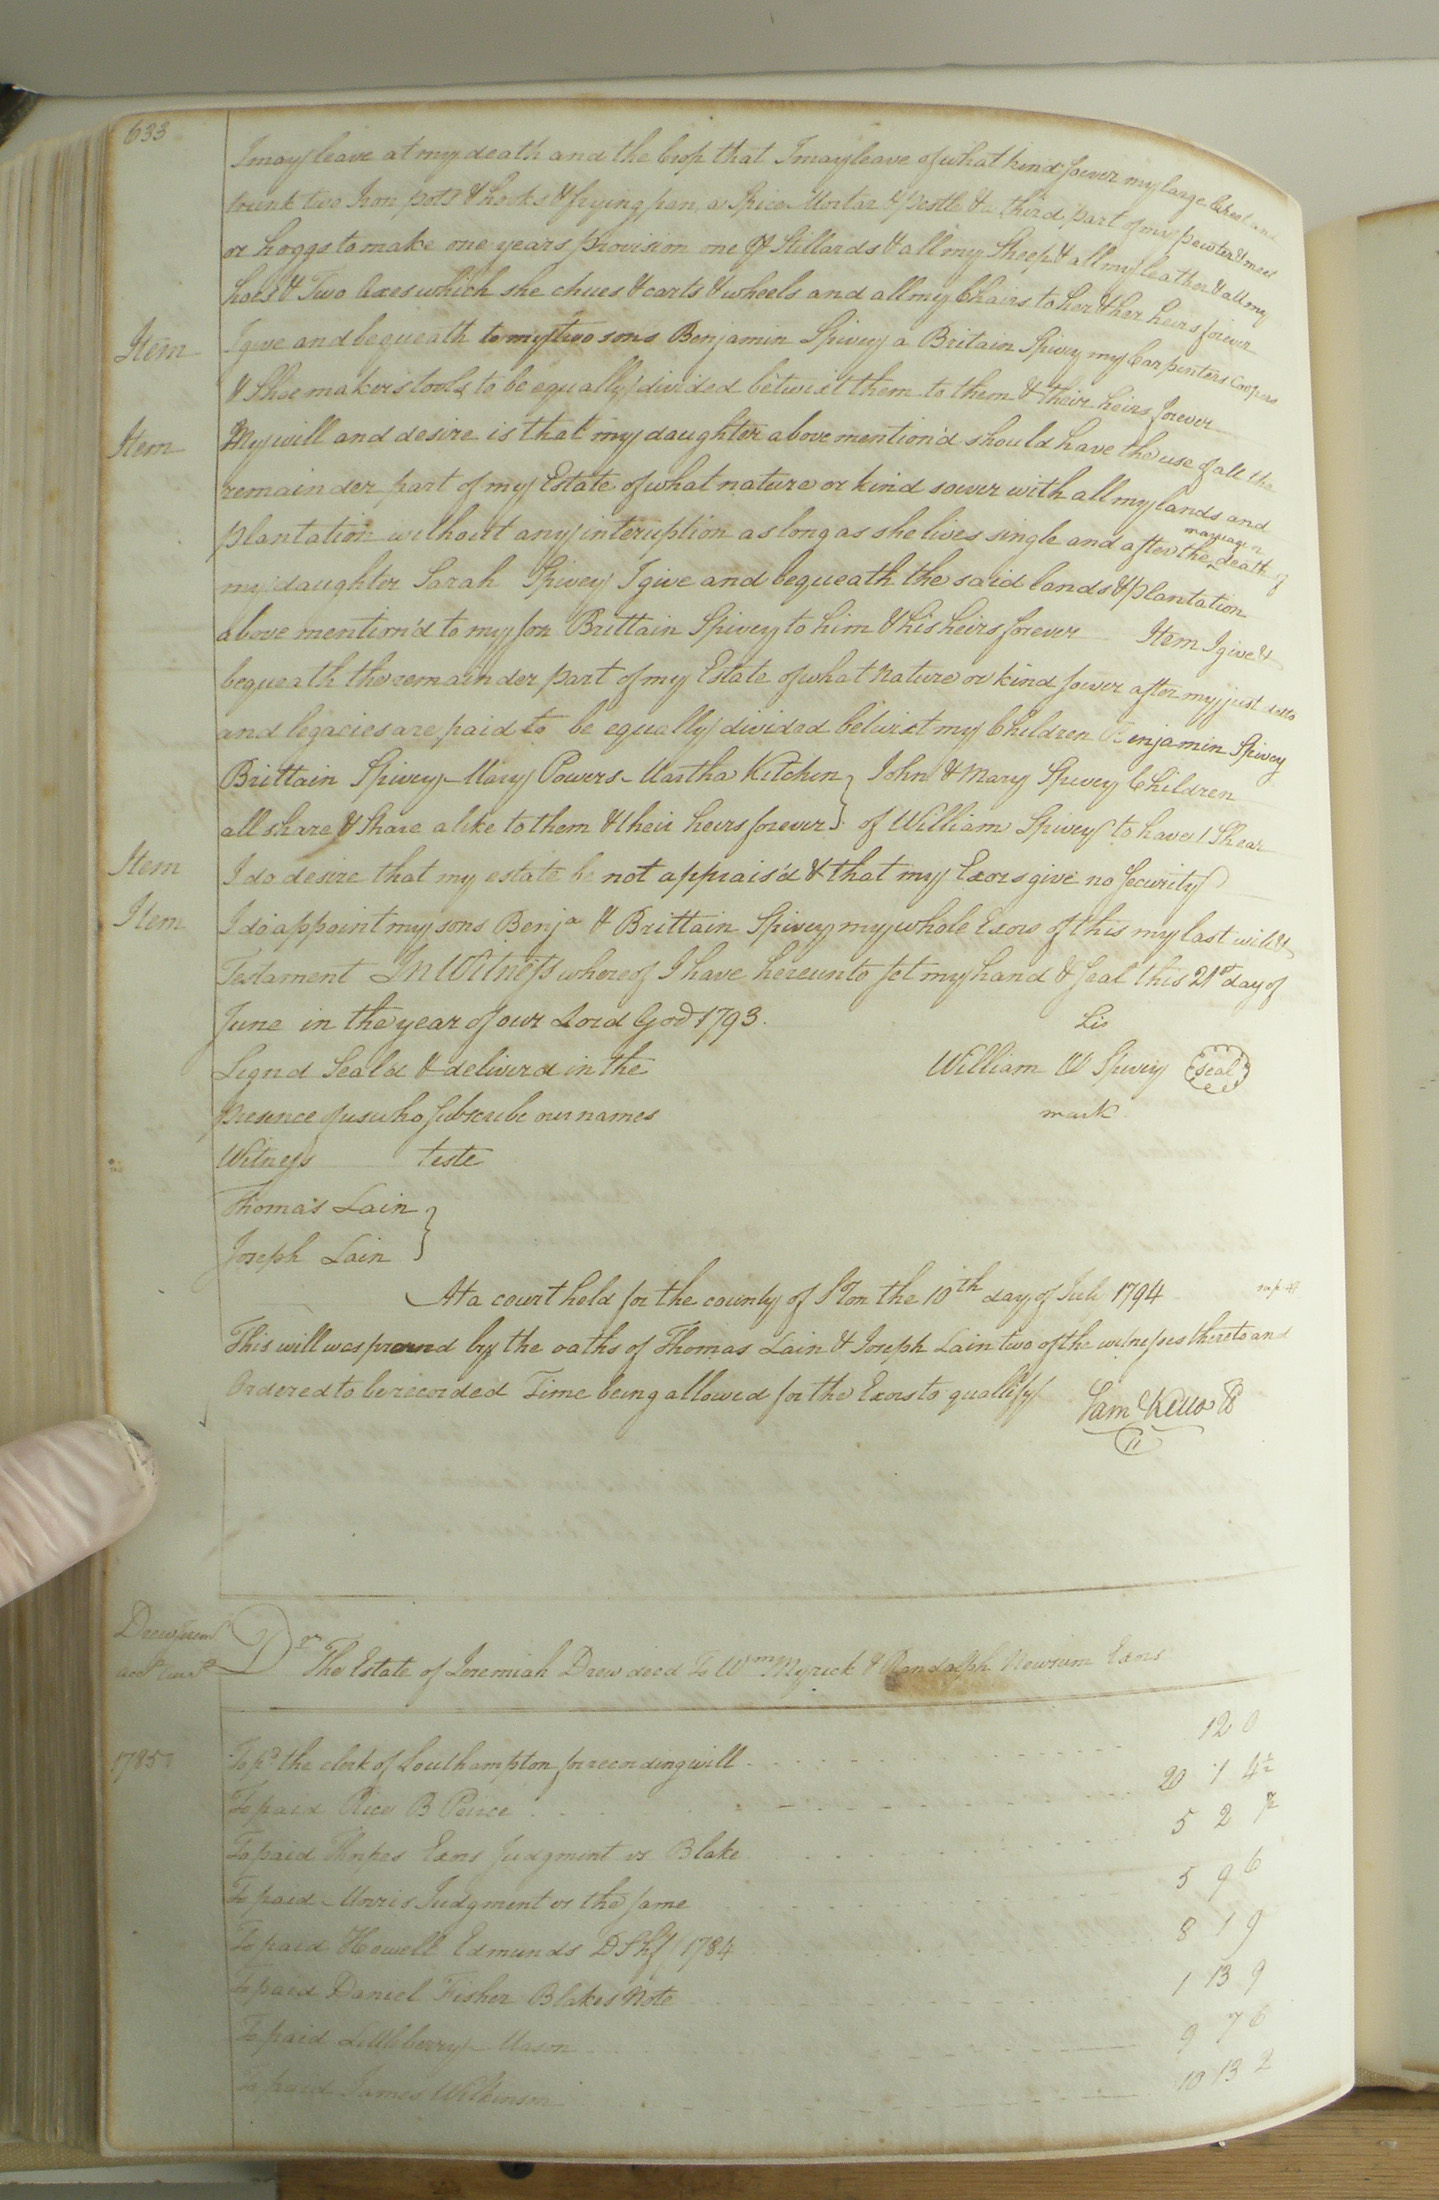 633
I may leave at my death and the Crop that I may leave of what kind soever my large Chest and
trunk two Iron pots & hooks & frying pan, a Spice Mortar & pestle & a third part of my pewter & meat
or hoggs to make one years provision one pr Stillards & all my Sheep & all my leather & all my
hoes & Two axes which she chues & carts & wheels and all my Chairs to her & her heirs forever
Item I give and bequeath to my two sons Benjamin Spivey a Britain Spivey my Carpenters Coopers
& Shoemakers tools to be equally divided betwixt them to them & their heirs forever
Item My will and desire is that my daughter above mention'd should have the use of all the
remainder part of my Estate of what nature or kind sower with all my lands and
plantation without any interuption as long as she lives single and after the marriage or death of
my daughter Sarah Spivey I give and bequeath the said lands & plantation
above mention'd to my son Brittain Spivey to him & his heirs forever Item I give &
bequeath the remainder part of my Estate of what nature or kind sower after my just debts
and legacies are paid to be equally divided betwixt my Children Benjamin Spivey
Brittain Spivey - Mary Powers - Martha Kitchin } John & Mary Spivey Children
all share & share alike to them & their heirs forever } of William Spivey to have 1 Shear
Item I do desire that my estate be not apprais'd & that my Exors give no Security
Item I do appoint my sons Benja & Brittain Spivey my whole Exors of this my last will &
Testament In Witness whereof I have hereunto set my hand & seal this 21st day of
June in the year of our Lord God 1793.
his
Signd Seald & deliverd in the William W Spivey Seal
presence of us who subscribe our names mark
Witness teste
Thomas Lain }
Joseph Lain }
At a court held for the county of Ston the 10th day of July 1794
This will was proved by the oaths of Thomas Lain & Joseph Lain two of the witnesses thereto and
Ordered to be recorded Time being allowed for the Exors to quallify Sam Kello Cl
Drew
Dr The Estate of Jeremiah Drew decd To Wm Myrick & Randolph Newsum Exors
1785 To pd the clerk of Southampton for recording will 12 0
To paid Rice B Peirce 20 1 4½
To paid Thopes Exors Judgment vs Blake 5 2
To paid Judgment vs the same 5 9 6
To paid Howell Edmunds D Shf 1784 8 1 9
To paid Daniel Fisher Blakes Note 1 13 9
To paid Littleberry Mason 9 7 6
To paid James Wilkinson 10 13 2